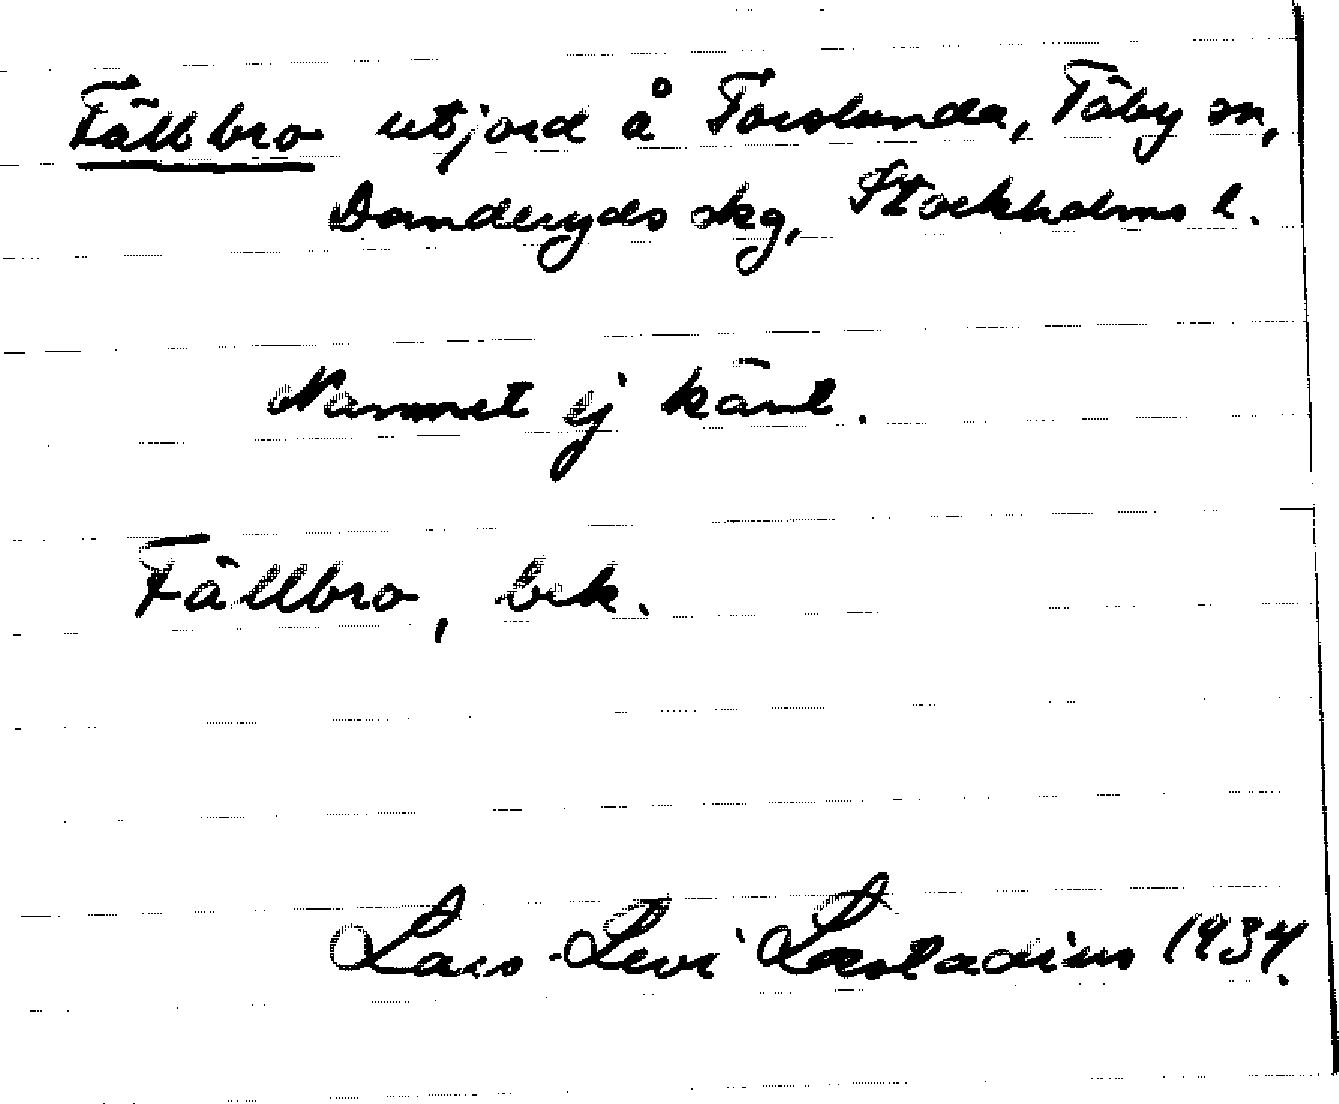 Fällbro utjord å Torslunda, Täby sn,
Danderyds skg, Stockholms l.
Namnet ej känt.
Fällbro, bek.
Lars-Levi Læstadius 1934.